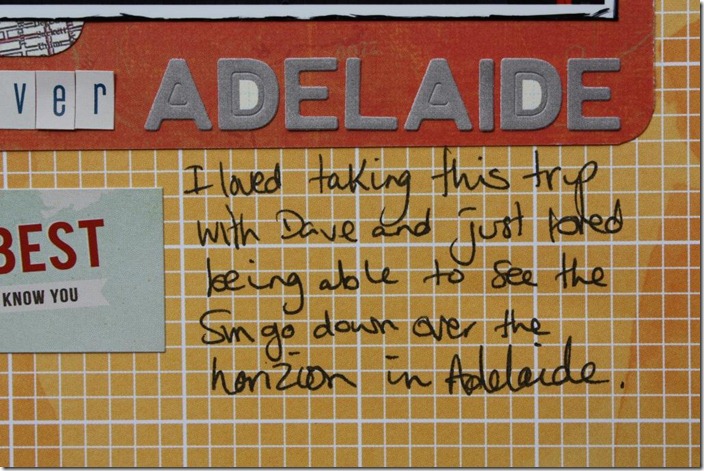 ver ADELAIDE
I loved taking this trip
with Dave and just loved
being able to see the
Sun go down over the
horizion in Adelaide.
BEST
KNOW YOU